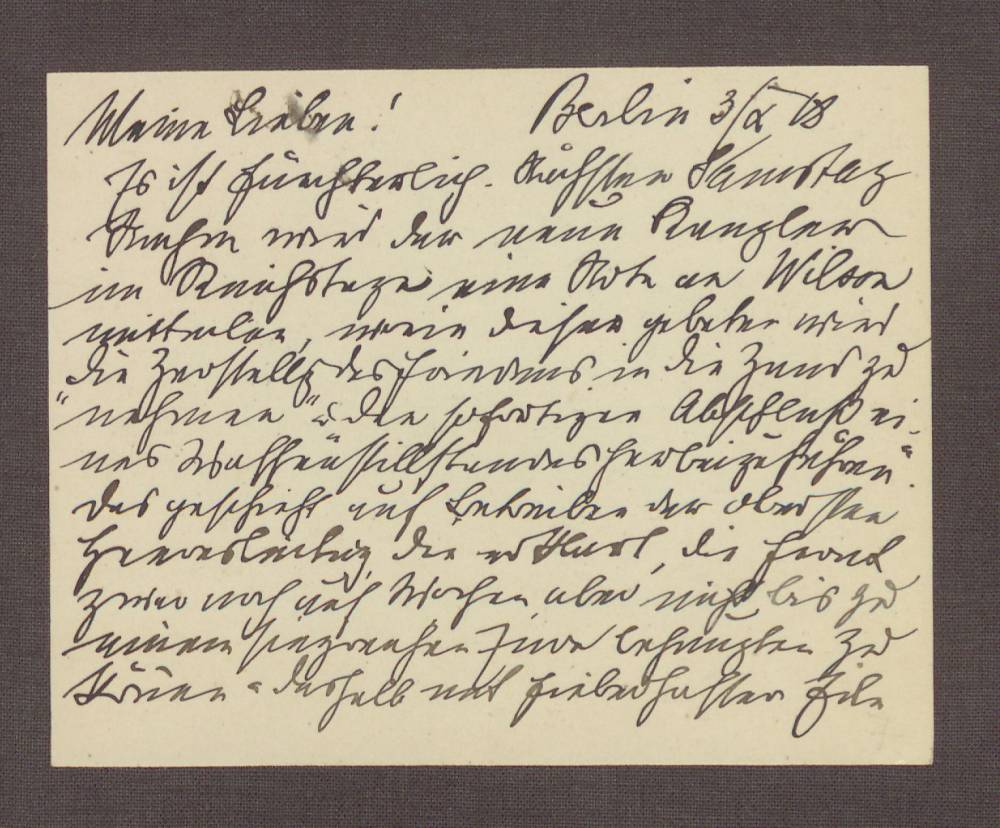 Meine Lieben! Berlin 3/X 18
Es ist fürchterlich. Nächsten Samstag
wird der neue Kanzler
im Reichstage eine Note an Wilson
mitteilen, worin dieser gebeten wird
die Herstellg des Friedens in die Hand zu
"nehmen" u den sofortigen Abschluß ei-
nes Waffenstillstandes herbeizuführen".
Das geschieht auf Betreiben der Obersten
Heeresleitung, die erklärt, die Front
zwar noch auf Wochen aber nicht bis zu
einem siegreichen Ende behaupten zu
können u deshalb mit fieberhafter Eile